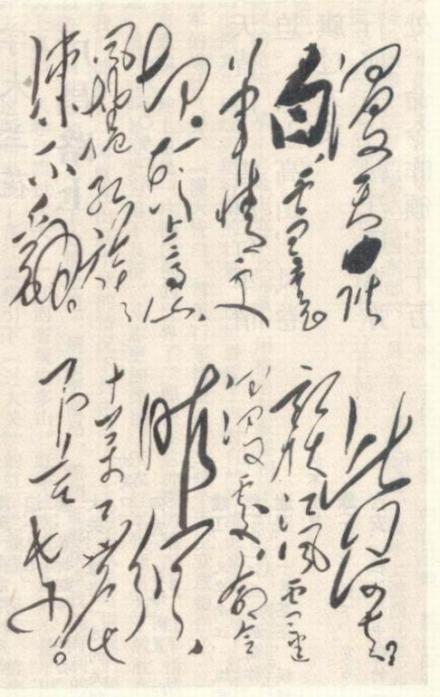 漫天皆
白雪里行
军情更
迫。头上高山，
风卷红旗
冻不翻。
此行何去
赣江风雪
迷漫处。命令
昨颁，
十万工农
下吉安。